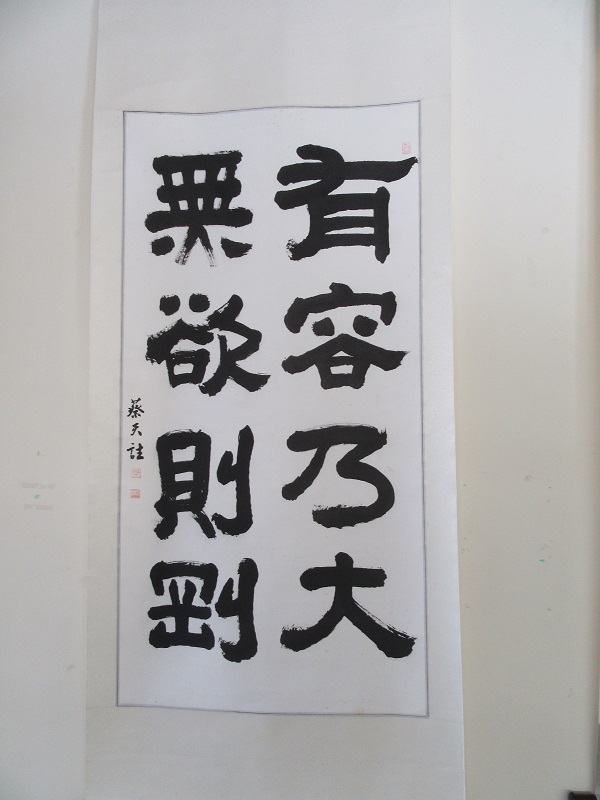 有容乃大
無欲則剛
蔡天註